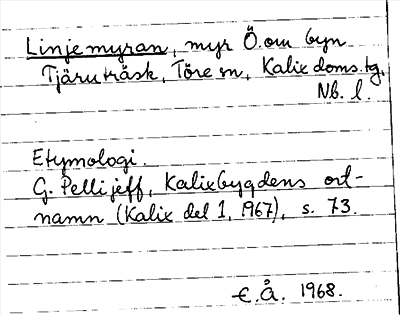 Linjemyran, myr Ö. om byn
Tjäruträsk, Töre sn, Kalix doms.tg,
Nb. l.
Etymologi.
G. Pellijeff, Kalixbygdens ort-
namn (Kalix del 1, 1967), s. 73.
E.Å. 1968.